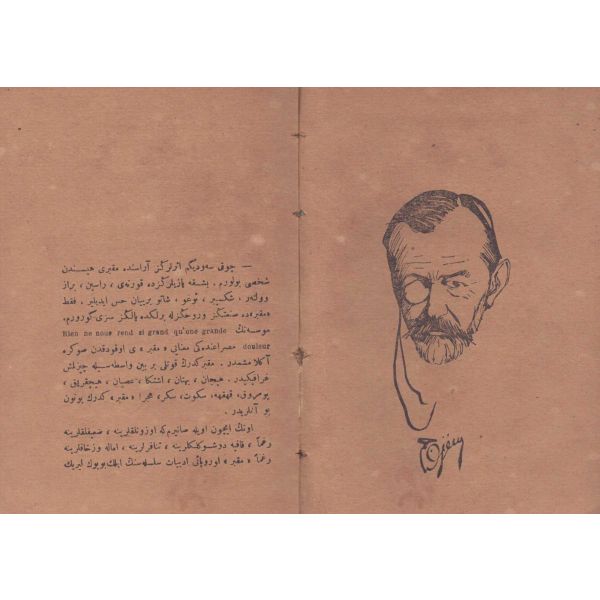 — چوق سه‌ودیگم اثرلرکز آراسنده مقبری هپسندن
شخصی بولورم . بشقه یازیلرکزده قورنه‌ی ، راسین ، براز
وولتهر ، شکسپیر ، ئوغو ، شاتو برییان حس ایدیلیر . فقط
«مقبر»ده صنعتکز وروحکزله برلکده یالکز سزی کورورم.
موسه‌نك Rien ne nous rend si grand qu'une grande
douleur مصراعنده‌کی معنایی « مقبر » ی اوقودقدن صوکره
آکلامشمدر . مقبر کدرك قوتلی بر بین واسطه‌سیله چیزلمش
غرافیکیدر . هیجان ، بهتان ، اشتکا ، عصیان ، هیچقریق ،
یومروق ، قهقهه ، سکوت ، سکر ، هجر! « مقبر » کدرك بوتون
بو آنلریدر .
اونك ایچون اویله صانیرم که اوزونلقلرینه ، ضعیفلقلرینه
رغماً ، قافیه دوشوکلکلرینه ، تنافرلرینه ، اماله وزحافلرینه
رغماً « مقبر » اوروپائی ادبیات سلسله‌سنك ایلك بویوك لیریك